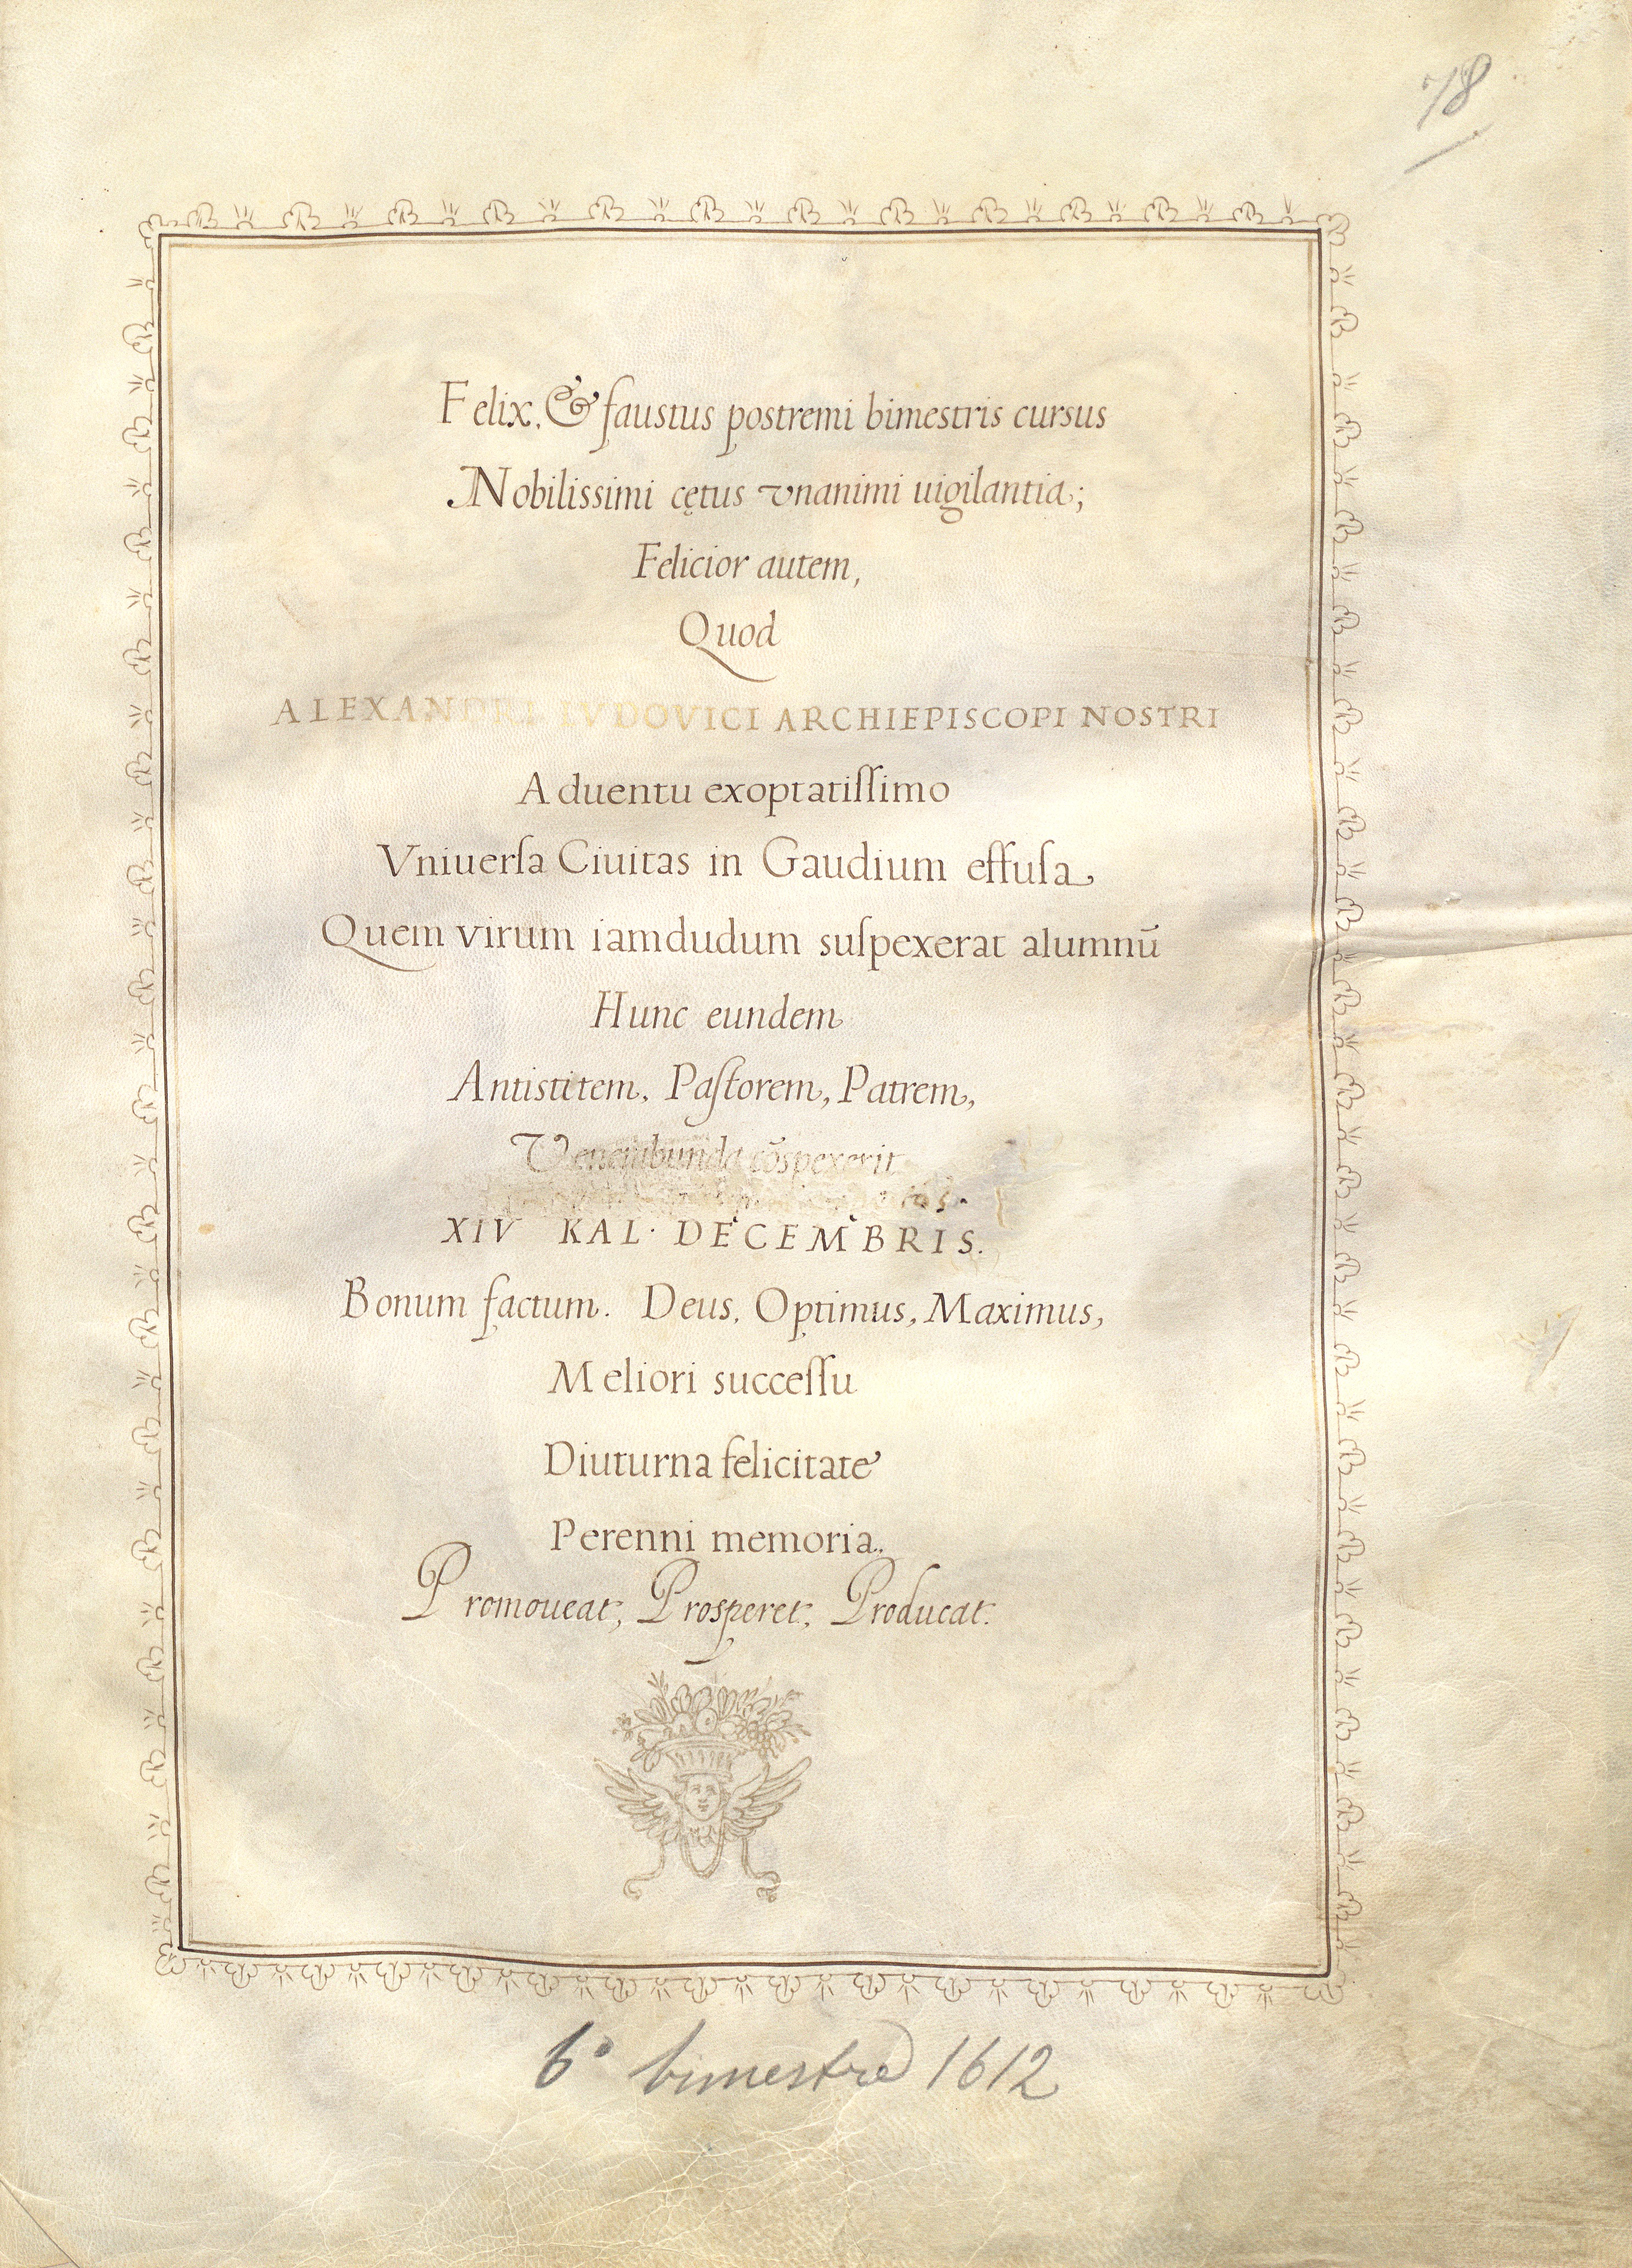 78
Felix, & faustus postremi bimestris cursus
Nobilissimi cętus vnanimi uigilantia;
Felicior autem,
Quod
ALEXANDRI LVDOVICI ARCHIEPISCOPI NOSTRI
Aduentu exoptatiſſimo
Vniuerſa Ciuitas in Gaudium effuſa
Quem virum iamdudum suſpexerat alumnū
Hunc eundem
Antistitem, Paſtorem, Patrem,
Venerabunda cōspexerit
XIV KAL. DECEMBRIS.
Bonum factum. Deus, Optimus, Maximus,
Meliori succeſſu
Diuturna felicitate
Perenni memoria.
Promoueat, Prosperet, Producat.
6° bimestre 1612